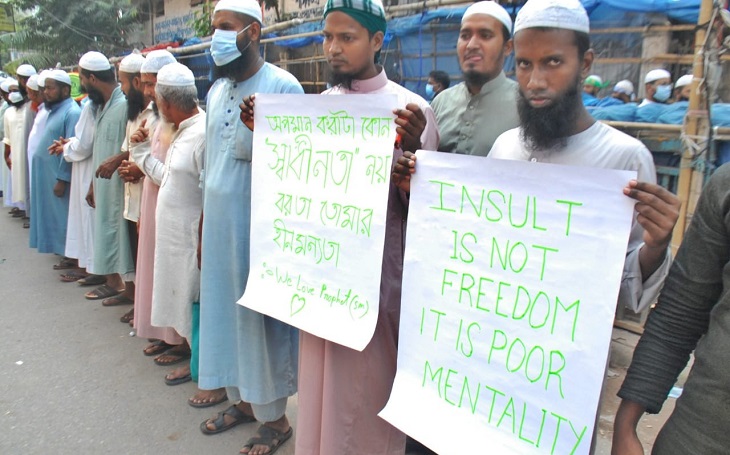 অপমান করাটা কোন
"স্বাধীনতা" নয়
বরং তা তোমার
হীনমন্যতা
We Love Prophet (sm)
INSULT
IS NOT
FREEDOM
IT IS POOR
MENTALITY